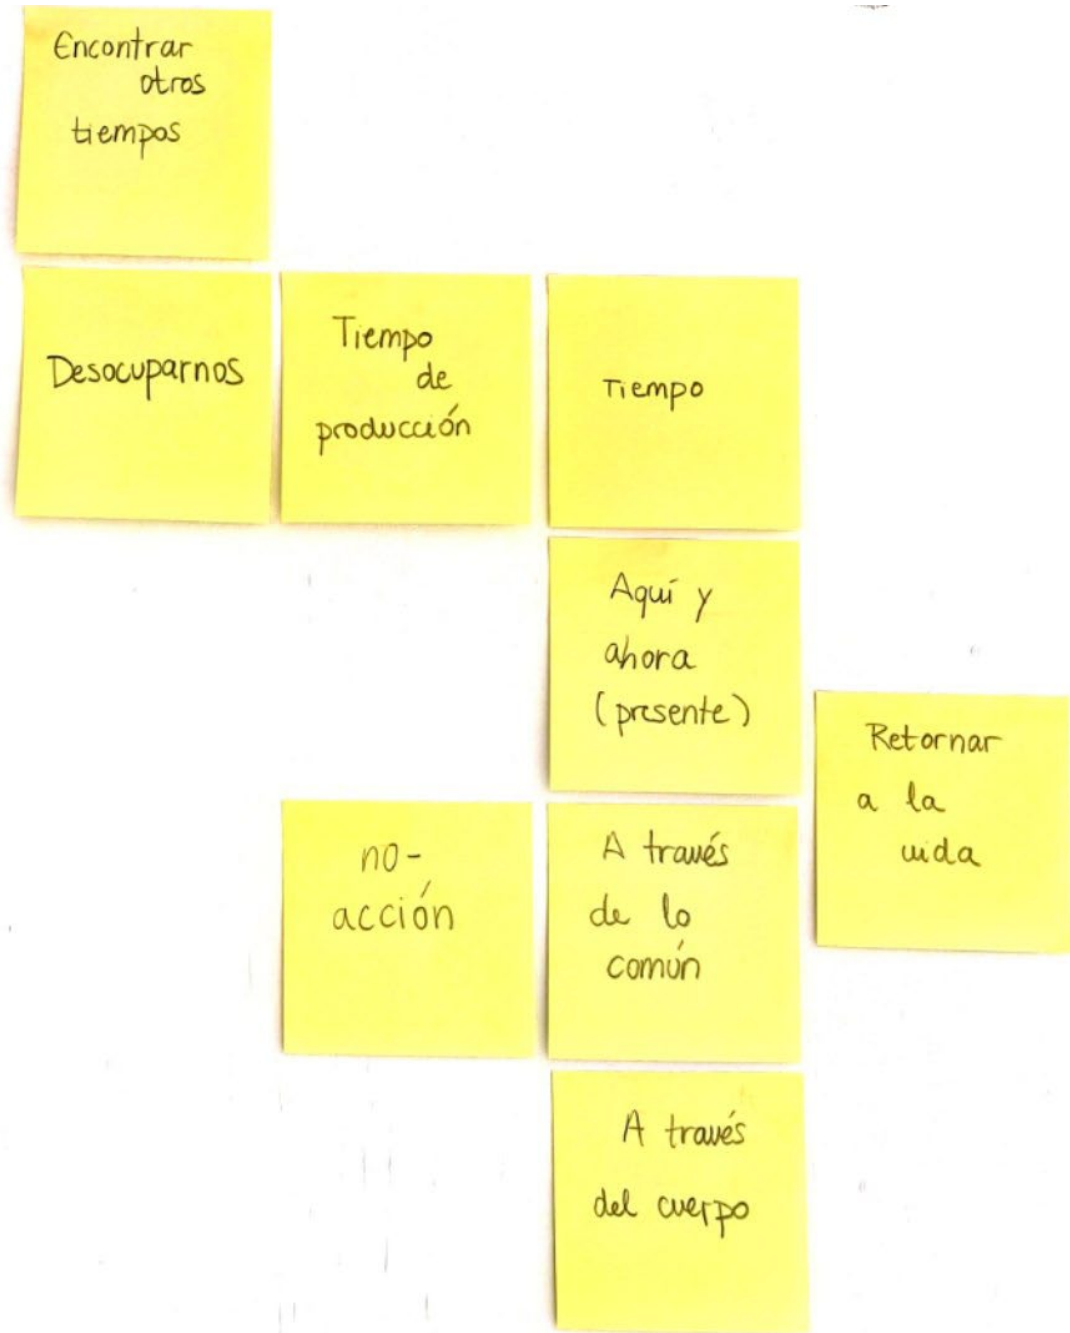 Encontrar
otros
tiempos
Desocuparnos
Tiempo
de
producción
Tiempo
Aquí y
ahora
(presente)
Retornar
a la
vida
no-
acción
A través
de lo
común
A través
del cuerpo